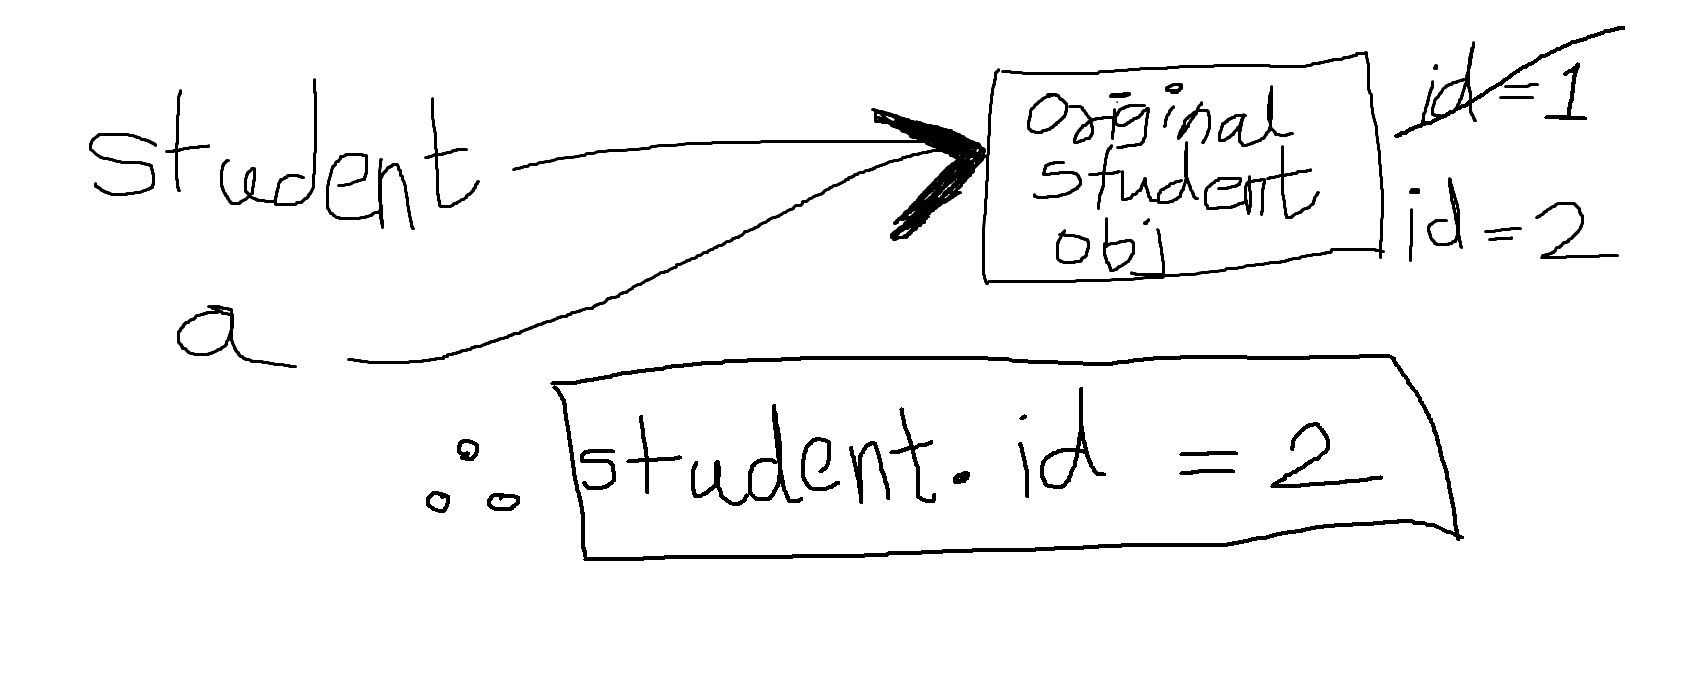 student
original
student
obj
id=1
id=2
a
∴ student.id = 2